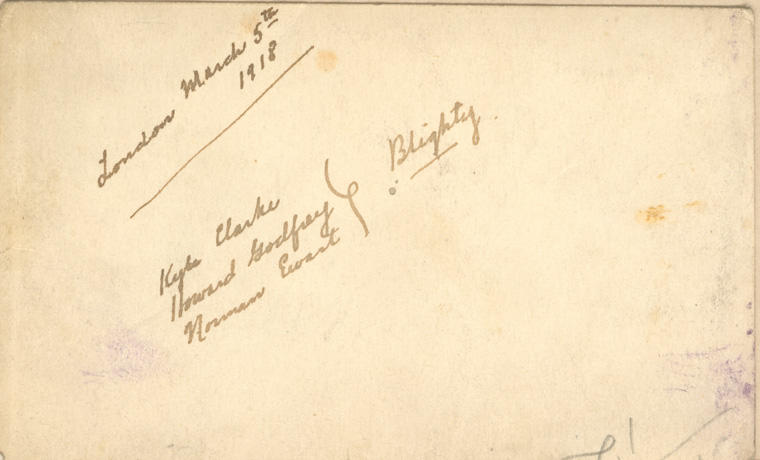 London March 5th
1918
Blighty.
Kyle Clarke
Howard Godfrey
Norman Ewart